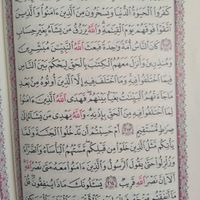 كَفَرُوا۟ ٱلْحَيَوٰةُ ٱلدُّنْيَا وَيَسْخَرُونَ مِنَ ٱلَّذِينَ ءَامَنُوا۟ وَٱلَّذِينَ
ٱتَّقَوْا۟ فَوْقَهُمْ يَوْمَ ٱلْقِيَٰمَةِ وَٱللَّهُ يَرْزُقُ مَن يَشَآءُ بِغَيْرِ حِسَابٍ
٢١٢ كَانَ ٱلنَّاسُ أُمَّةً وَٰحِدَةً فَبَعَثَ ٱللَّهُ ٱلنَّبِيِّـۧنَ مُبَشِّرِينَ
وَمُنذِرِينَ وَأَنزَلَ مَعَهُمُ ٱلْكِتَٰبَ بِٱلْحَقِّ لِيَحْكُمَ بَيْنَ ٱلنَّاسِ
فِيمَا ٱخْتَلَفُوا۟ فِيهِ وَمَا ٱخْتَلَفَ فِيهِ إِلَّا ٱلَّذِينَ أُوتُوهُ مِنۢ بَعْدِ
مَا جَآءَتْهُمُ ٱلْبَيِّنَٰتُ بَغْيًۢا بَيْنَهُمْ فَهَدَى ٱللَّهُ ٱلَّذِينَ ءَامَنُوا۟
لِمَا ٱخْتَلَفُوا۟ فِيهِ مِنَ ٱلْحَقِّ بِإِذْنِهِۦ وَٱللَّهُ يَهْدِى مَن يَشَآءُ إِلَىٰ
صِرَٰطٍ مُّسْتَقِيمٍ ٢١٣ أَمْ حَسِبْتُمْ أَن تَدْخُلُوا۟ ٱلْجَنَّةَ وَلَمَّا
يَأْتِكُم مَّثَلُ ٱلَّذِينَ خَلَوْا۟ مِن قَبْلِكُم مَّسَّتْهُمُ ٱلْبَأْسَآءُ وَٱلضَّرَّآءُ
وَزُلْزِلُوا۟ حَتَّىٰ يَقُولَ ٱلرَّسُولُ وَٱلَّذِينَ ءَامَنُوا۟ مَعَهُۥ مَتَىٰ نَصْرُ ٱللَّهِ
أَلَآ إِنَّ نَصْرَ ٱللَّهِ قَرِيبٌ ٢١٤ يَسْـَٔلُونَكَ مَاذَا يُنفِقُونَ قُلْ